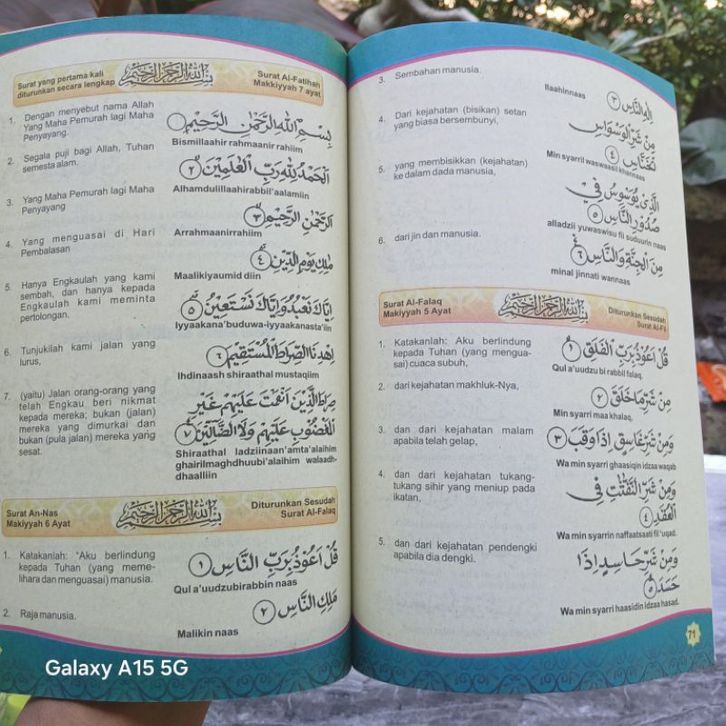 Surat yang pertama kali
diturunkan secara lengkap
بِسْمِ اللهِ الرَّحْمٰنِ الرَّحِيْمِ
Surat Al-Fatihah
Makkiyyah 7 ayat
1. Dengan menyebut nama Allah
Yang Maha Pemurah lagi Maha
Penyayang.
بِسْمِ اللهِ الرَّحْمٰنِ الرَّحِيْمِ ١
Bismillaahir rahmaanir rahiim
2. Segala puji bagi Allah, Tuhan
semesta alam.
اَلْحَمْدُ لِلّٰهِ رَبِّ الْعٰلَمِيْنَ ٢
Alhamdulillaahirabbil'aalamiin
3. Yang Maha Pemurah lagi Maha
Penyayang
الرَّحْمٰنِ الرَّحِيْمِ ٣
Arrahmaanirrahiim
4. Yang menguasai di Hari
Pembalasan
مٰلِكِ يَوْمِ الدِّيْنِ ٤
Maalikiyaumid diin
5. Hanya Engkaulah yang kami
sembah, dan hanya kepada
Engkaulah kami meminta
pertolongan.
اِيَّاكَ نَعْبُدُ وَاِيَّاكَ نَسْتَعِيْنُ ٥
Iyyaakana'buduwa-iyyaakanasta'iin
6. Tunjukilah kami jalan yang
lurus,
اِهْدِنَا الصِّرَاطَ الْمُسْتَقِيْمَ ٦
Ihdinaash shiraathal mustaqiim
7. (yaitu) Jalan orang-orang yang
telah Engkau beri nikmat
kepada mereka; bukan (jalan)
mereka yang dimurkai dan
bukan (pula jalan) mereka yang
sesat.
صِرَاطَ الَّذِيْنَ اَنْعَمْتَ عَلَيْهِمْ غَيْرِ
الْمَغْضُوْبِ عَلَيْهِمْ وَلَا الضَّآلِّيْنَ ٧
Shiraathal ladziinaan'amta'alaihim
ghairilmaghdhuubi'alaihim walaadh-
dhaalliin
Surat An-Nas
Makiyyah 6 Ayat
بِسْمِ اللهِ الرَّحْمٰنِ الرَّحِيْمِ
Diturunkan Sesudah
Surat Al-Falaq
1. Katakanlah: "Aku berlindung
kepada Tuhan (yang meme-
lihara dan menguasai) manusia.
قُلْ اَعُوْذُ بِرَبِّ النَّاسِ ١
Qul a'uudzubirabbin naas
2. Raja manusia.
مَلِكِ النَّاسِ ٢
Malikin naas
3. Sembahan manusia.
اِلٰهِ النَّاسِ ٣
Ilaahinnaas
4. Dari kejahatan (bisikan) setan
yang biasa bersembunyi,
مِنْ شَرِّ الْوَسْوَاسِ
الْخَنَّاسِ ٤
Min syarril waswaasil khannaas
5. yang membisikkan (kejahatan)
ke dalam dada manusia,
الَّذِيْ يُوَسْوِسُ فِيْ
صُدُوْرِ النَّاسِ ٥
alladzii yuwaswisu fii suduurin naas
6. dari jin dan manusia.
مِنَ الْجِنَّةِ وَالنَّاسِ ٦
minal jinnati wannaas
Surat Al-Falaq
Makiyyah 5 Ayat
بِسْمِ اللهِ الرَّحْمٰنِ الرَّحِيْمِ
Diturunkan Sesudah
Surat Al-Fil
1. Katakanlah: Aku berlindung
kepada Tuhan (yang mengua-
sai) cuaca subuh,
قُلْ اَعُوْذُ بِرَبِّ الْفَلَقِ ١
Qul a'uudzu bi rabbil falaq,
2. dari kejahatan makhluk-Nya,
مِنْ شَرِّ مَا خَلَقَ ٢
Min syarri maa khalaq,
3. dan dari kejahatan malam
apabila telah gelap,
وَمِنْ شَرِّ غَاسِقٍ اِذَا وَقَبَ ٣
Wa min syarri ghaasiqin idzaa waqab
4. dan dari kejahatan tukang-
tukang sihir yang meniup pada
ikatan,
وَمِنْ شَرِّ النَّفّٰثٰتِ فِى
الْعُقَدِ ٤
Wa min syarrin naffaatsaati fil 'uqad.
5. dan dari kejahatan pendengki
apabila dia dengki.
وَمِنْ شَرِّ حَاسِدٍ اِذَا
حَسَدَ ٥
Wa min syarri haasidin idzaa hasad.
71
Galaxy A15 5G